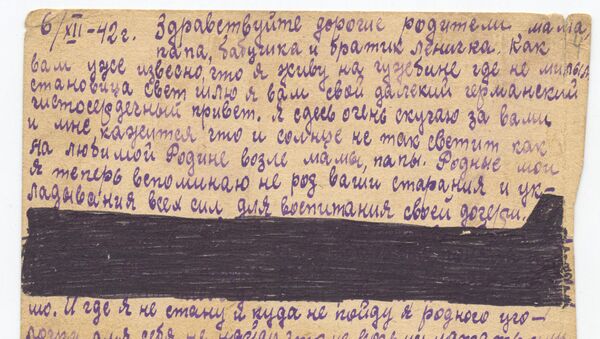 6/XII-42г. Здравствуйте дорогие родители мама
папа, бабушка и братик Леничка. Как
вам уже извесно, что я живу на чужбине где не милым
становица свет шлю я вам свой далекий германский
чистосердечный привет. Я сдесь очень скучаю за вами
и мне кажится что и солнце не так светит как
на любимой Родине возле мамы, папы. Родные мои
я теперь вспоминаю не роз ваши старания и ук-
ладывания всех сил для воспитания своей дочери.
мо. И где я не стану и куда не пойду я родного уго-
для себя не найду